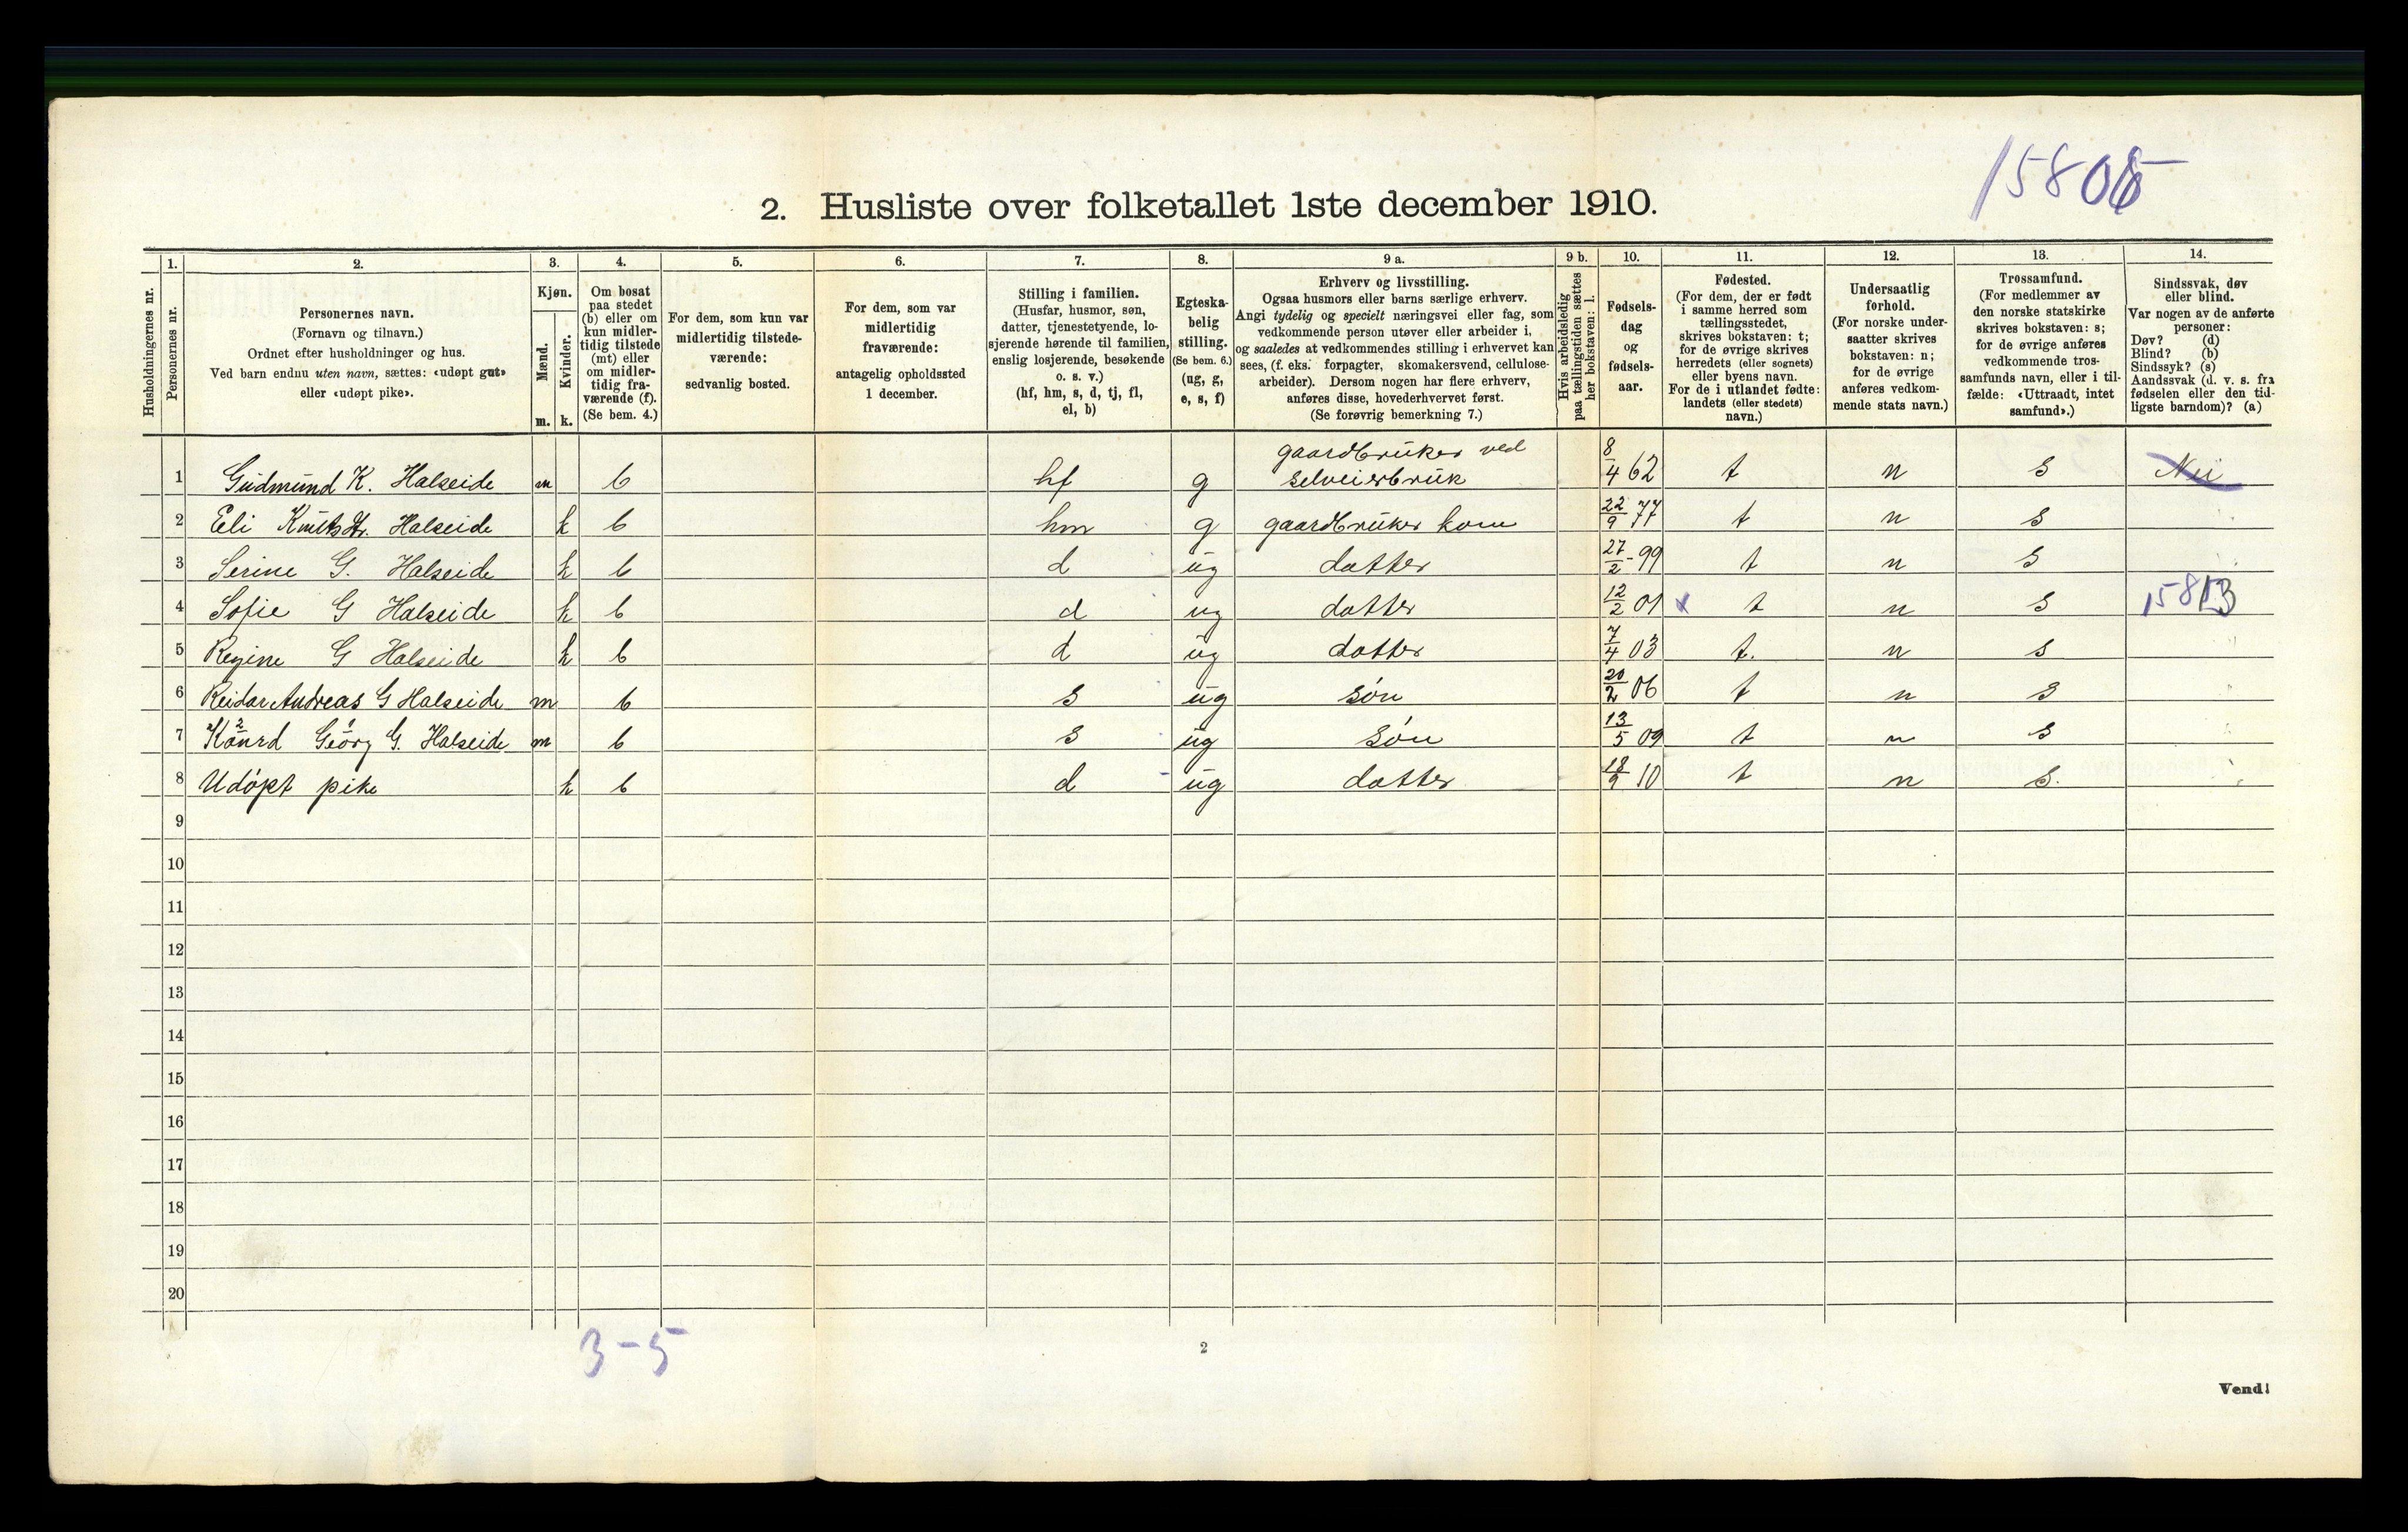 15806
2. Husliste over folketallet 1ste december 1910.
Husholdningernes nr.
1.
Personernes nr.
2.
Personernes navn.
(Fornavn og tilnavn.)
Ordnet efter husholdninger og hus.
Ved barn endnu uten navn, sættes: «udøpt gut»
eller «udøpt pike».
3.
Kjøn.
Mænd.
Kvinder.
m. k.
4.
Om bosat
paa stedet
(b) eller om
kun midler-
tidig tilstede
(mt) eller
om midler-
tidig fra-
værende (f).
(Se bem. 4.)
5.
For dem, som kun var
midlertidig tilstede-
værende:
sedvanlig bosted.
6.
For dem, som var
midlertidig
fraværende:
antagelig opholdssted
1 december.
7.
Stilling i familien.
(Husfar, husmor, søn,
datter, tjenestetyende, lo-
sjerende hørende til familien,
enslig losjerende, besøkende
o. s. v.)
(hf, hm, s, d, tj, fl,
el, b)
8.
Egteska-
belig
stilling.
(Se bem. 6.)
(ug, g,
e, s, f)
9 a.
Erhverv og livsstilling.
Ogsaa husmors eller barns særlige erhverv.
Angi tydelig og specielt næringsvei eller fag, som
vedkommende person utøver eller arbeider i,
og saaledes at vedkommendes stilling i erhvervet kan
sees, (f. eks. forpagter, skomakersvend, cellulose-
arbeider). Dersom nogen har flere erhverv,
anføres disse, hovederhvervet først.
(Se forøvrig bemerkning 7.)
9 b.
Hvis arbeidsledig
paa tællingstiden sættes
her bokstaven: l.
10.
Fødsels-
dag
og
fødsels-
aar.
11.
Fødested.
(For dem, der er født
i samme herred som
tællingsstedet,
skrives bokstaven: t;
for de øvrige skrives
herredets (eller sognets)
eller byens navn.
For de i utlandet fødte:
landets (eller stedets)
navn.)
12.
Undersaatlig
forhold.
(For norske under-
saatter skrives
bokstaven: n;
for de øvrige
anføres vedkom-
mende stats navn.)
13.
Trossamfund.
(For medlemmer av
den norske statskirke
skrives bokstaven: s;
for de øvrige anføres
vedkommende tros-
samfunds navn, eller i til-
fælde: «Uttraadt, intet
samfund».)
14.
Sindssvak, døv
eller blind.
Var nogen av de anførte
personer:
Døv? (d)
Blind? (b)
Sindssyk? (s)
Aandssvak (d. v. s. fra
fødselen eller den tid-
ligste barndom)? (a)
1 Gudmund K. Halseide m b hf g gaardbruker ved selveierbruk 8/4 62 t n s Nei
2 Eli Knutsdtr. Halseide k b hm g gaardbruker kone 22/9 77 t n s
3 Serine G. Halseide k b d ug datter 27/2 - 99 t n s
4 Sofie G Halseide k b d ug datter 12/2 01 x t n s 15813
5 Regine G Halseide k b d ug datter 7/4 03 t. n s
6 Reidar Andreas G Halseide m b s ug søn 20/2 06 t n s
7 Konrd Georg G. Halseide m b s ug søn 13/5 09 t n s
8 Udøpt pike k b d ug datter 18/9 10 t n s.
9
10
11
12
13
14
15
16
17
18
19
20
3-5
2
Vend!